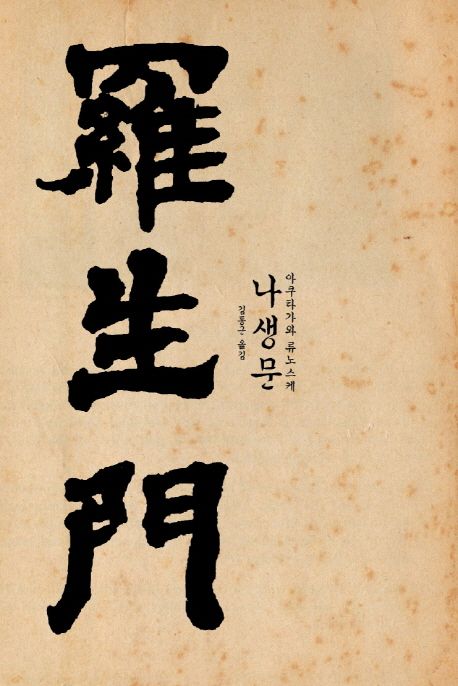 羅生門
아쿠타가와 류노스케
나생문
김동근 옮김